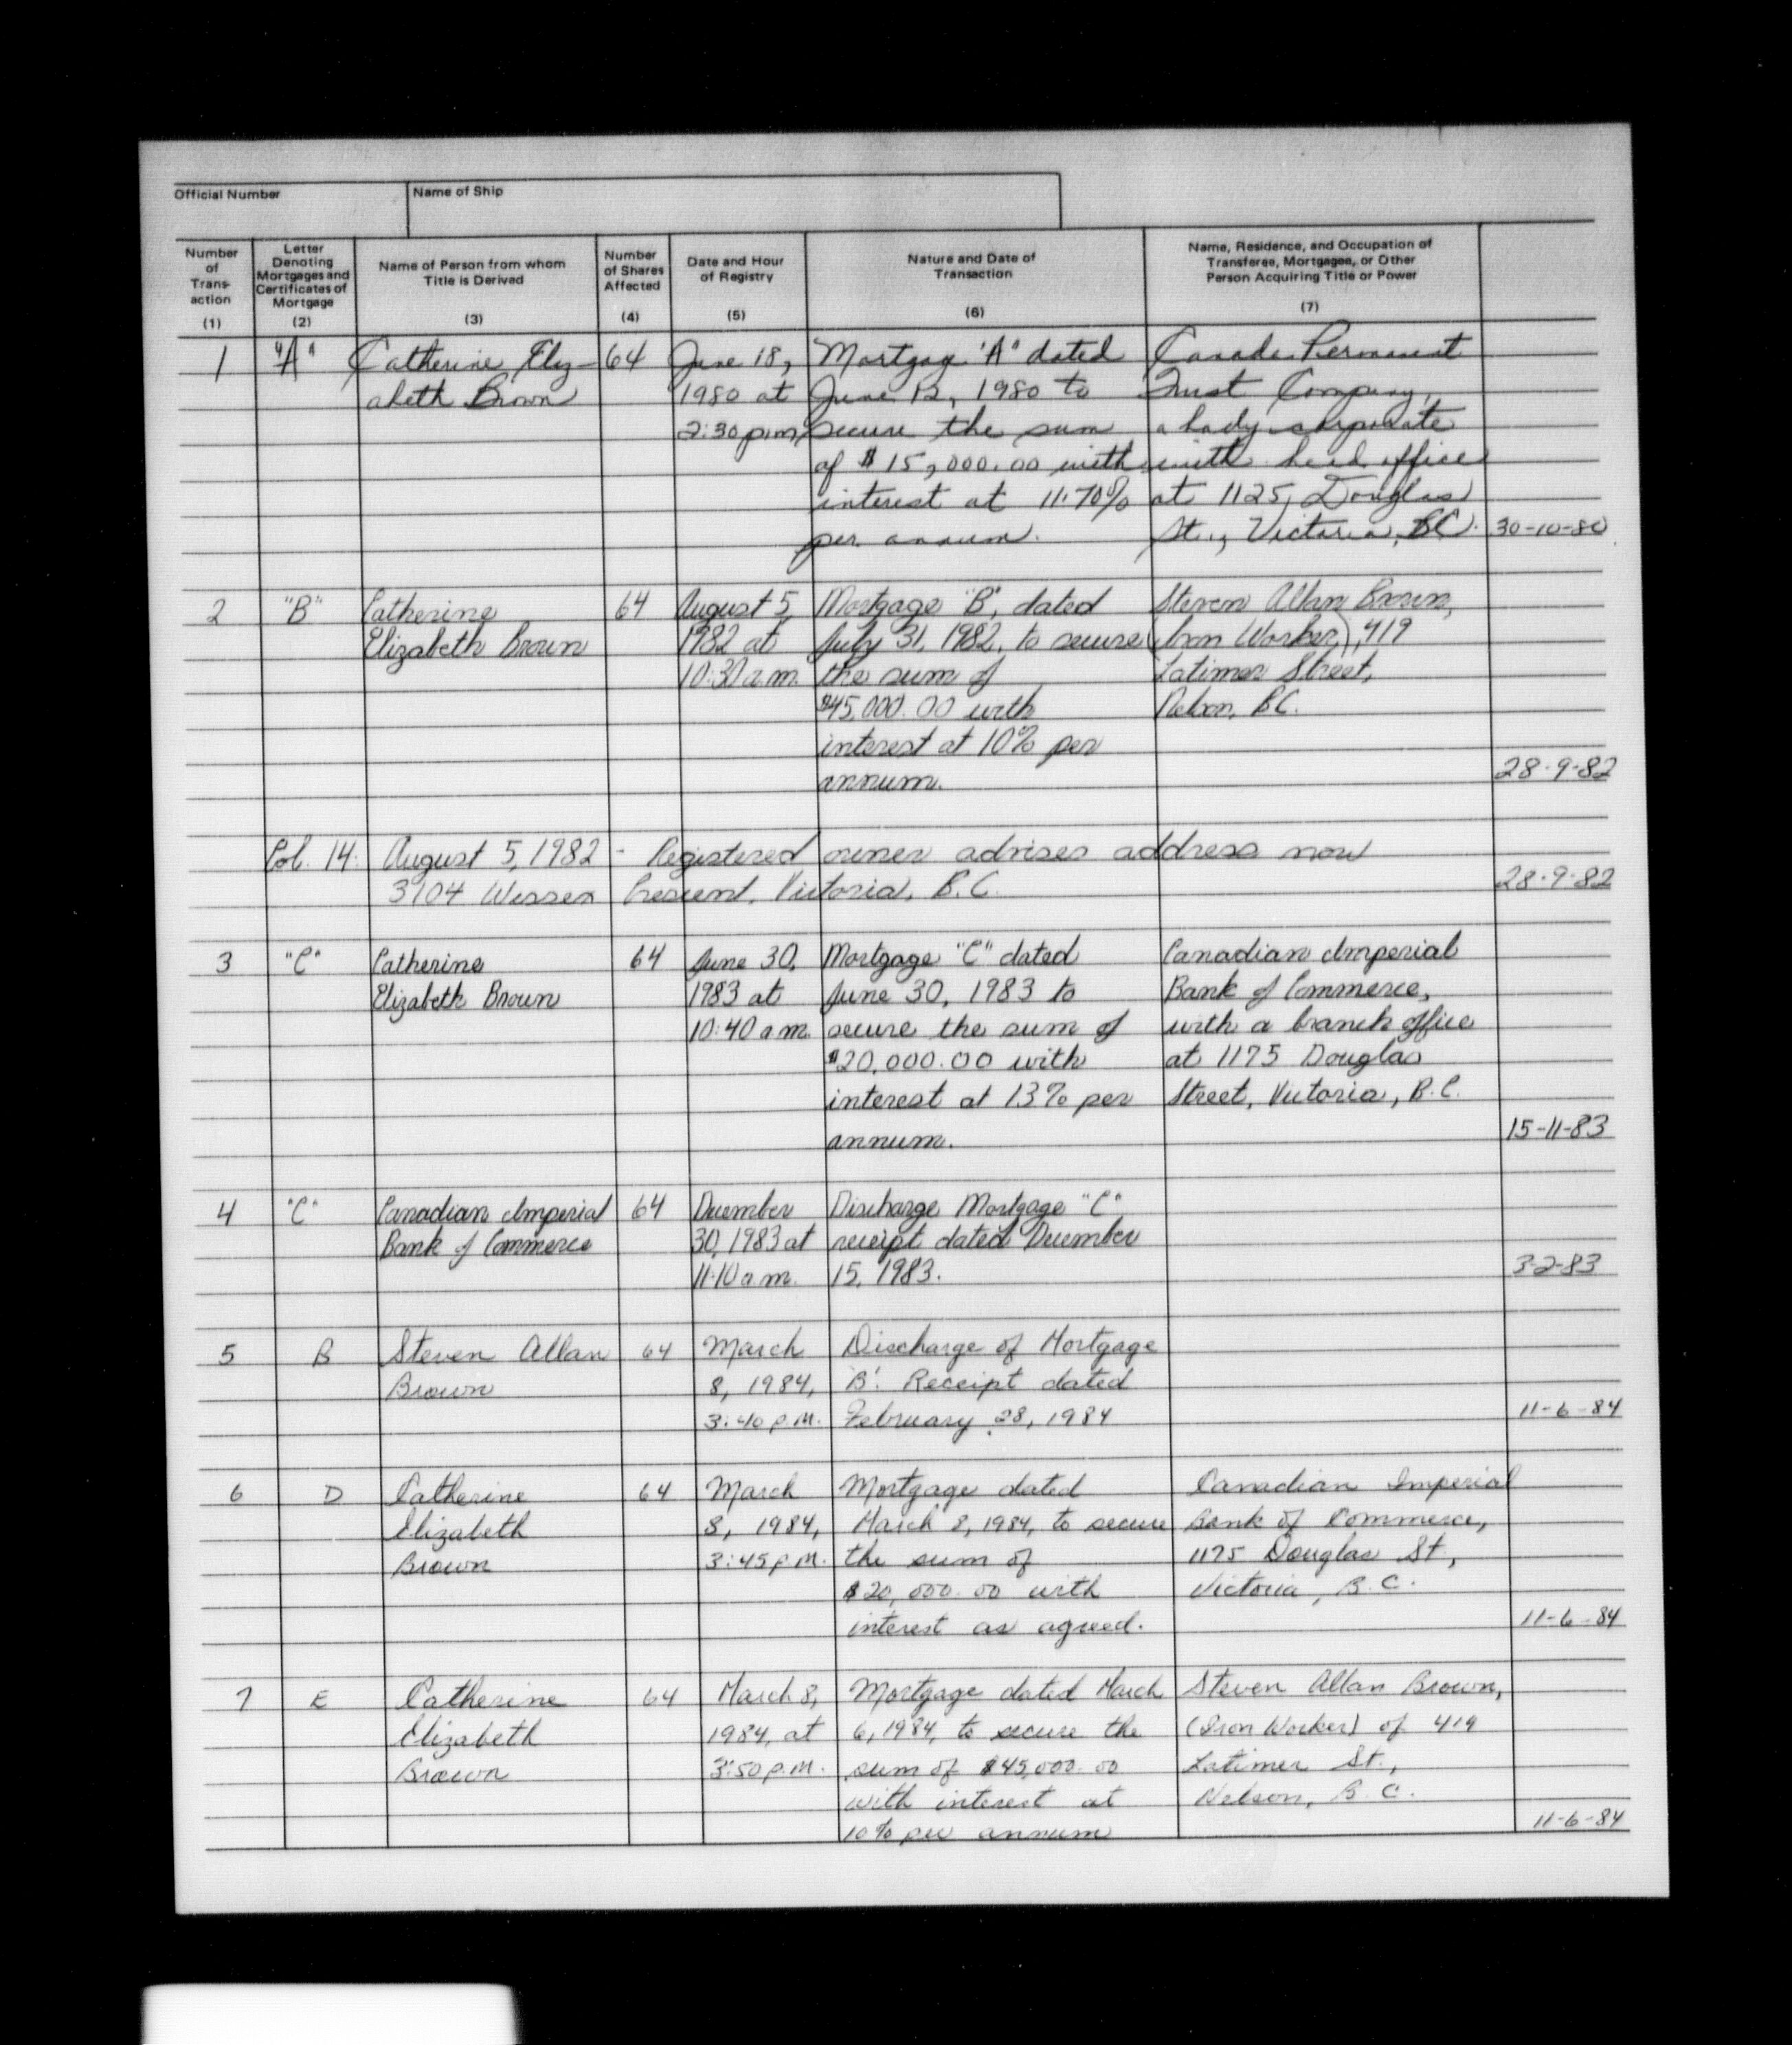 Official Number
Name of Ship
Number of Trans-action (1)
Letter Denoting Mortgages and Certificates of Mortgage (2)
Name of Person from whom Title is Derived (3)
Number of Shares Affected (4)
Date and Hour of Registry (5)
Nature and Date of Transaction (6)
Name, Residence, and Occupation of Transferee, Mortgagee, or Other Person Acquiring Title or Power (7)
1 "A" Catherine Eliz- 64 June 18, Mortgage "A" dated Canada Permanent
abeth Brown 1980 at June 12, 1980 to Trust Company,
2:30 p.m. secure the sum a body corporate
of $15,000.00 with with head office
interest at 11.70% at 1125, Douglas
per annum. St., Victoria, BC. 30-10-80
2 "B" Catherine 64 August 5, Mortgage "B", dated Steven Allan Brown,
Elizabeth Brown 1982 at July 31, 1982, to secure (Iron Worker), 419
10:30 a.m. the sum of Latimer Street,
$45,000.00 with Nelson, B.C.
interest at 10% per
annum. 28-9-82
Col. 14. August 5, 1982 - Registered owner advises address now
3104 Wessex Crescent, Victoria, B.C. 28-9-82
3 "C" Catherine 64 June 30, Mortgage "C" dated Canadian Imperial
Elizabeth Brown 1983 at June 30, 1983 to Bank of Commerce,
10:40 a.m. secure the sum of with a branch office
$20,000.00 with at 1175 Douglas
interest at 13% per Street, Victoria, B.C.
annum. 15-11-83
4 "C" Canadian Imperial 64 December Discharge Mortgage "C"
Bank of Commerce 30, 1983 at receipt dated December
11:10 a.m. 15, 1983. 3-2-83
5 B Steven Allan 64 March Discharge of Mortgage
Brown 8, 1984, 'B'. Receipt dated
3:40 P.M. February 28, 1984 11-6-84
6 D Catherine 64 March Mortgage dated Canadian Imperial
Elizabeth 8, 1984, March 8, 1984, to secure Bank of Commerce,
Brown 3:45 P.M. the sum of 1175 Douglas St,
$20,000.00 with Victoria, B.C.
interest as agreed. 11-6-84
7 E Catherine 64 March 8, Mortgage dated March Steven Allan Brown,
Elizabeth 1984, at 6, 1984, to secure the (Iron Worker) of 419
Brown 3:50 P.M. sum of $45,000.00 Latimer St.,
with interest at Nelson, B.C.
10% per annum 11-6-84